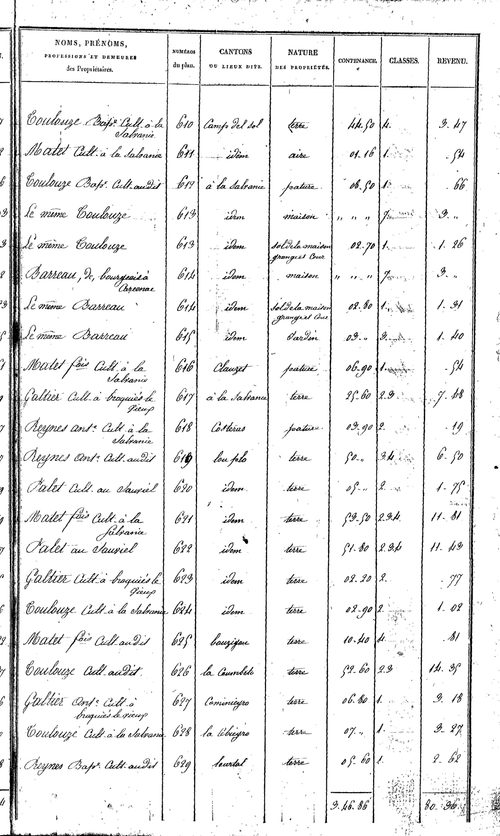 NOMS, PRÉNOMS, PROFESSIONS ET DEMEURES des Propriétaires. NUMÉROS du plan. CANTONS OU LIEUX DITS. NATURE DES PROPRIÉTÉS. CONTENANCE. CLASSES. REVENU.
Toulouze Bapte Cult. à la Salvanie 610 Camp del sol terre 44.50 4. 3.47
Matet Cult. à la Salvanie 611 idem aire 01.16 1. .54
Toulouze Bapte Cult. audit 612 à la Salvanie pature 06.50 1. .66
Le même Toulouze 613 idem maison " " " 7. 3. "
Le même Toulouze 613 idem sol de la maison grange et Cour 02.70 1. 1.26
Barreau, de, bourgeois à 614 idem maison " " " 7. 3. "
Le même Barreau 614 idem sol de la maison grange et Cour 02.80 1. 1.31
Le même Barreau 615 idem Jardin 03. " 3. 1.40
Matet fois Cult. à la Salvanie 616 Clauzet pature 06.90 1. .54
Galtier Cult. à broquiès le vieux 617 à la Salvanie terre 25.60 2.3 7.48
Reynes ant. Cult. à la Salvanie 618 Costeras pature 03.90 2. .19
Reynes Ant. Cult. audit 619 lou pelo terre 50. " 3.4. 6.50
Palet Cult. au Sauviel 620 idem terre 05. " 2. 1.75
Matet fois Cult. à la Salvanie 621 idem terre 53.50 2.3.4 11.81
Palet au Sauviel 622 idem terre 51.80 2.3.4 11.43
Galtier Cult. à broquiès le vieux 623 idem terre 02.20 2. .77
Toulouze Cult. à la Salvanie 624 idem terre 02.90 2. 1.02
Matet fois Cult. audit 625 terre 10.40 4. .81
Toulouze Cult. audit 626 la terre 52.60 2.3 14.35
Galtier Ant. Cult. à broquiès le vieux 627 terre 06.80 1. 3.18
Toulouze Cult. à la Salvanie 628 la terre 07. " 1. 3.27
Reynes Bapte Cult. audit 629 terre 05.60 1. 2.62
3.46.86 80.36